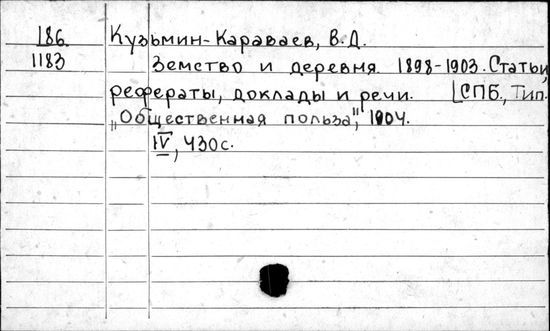 186
1183
Кузьмин-Караваев, В.Д.
Земство и деревня. 1898-1903. Статьи,
рефераты, доклады и речи. [СПБ., Тип.
„Общественная польза", 1904.
IV, 430с.